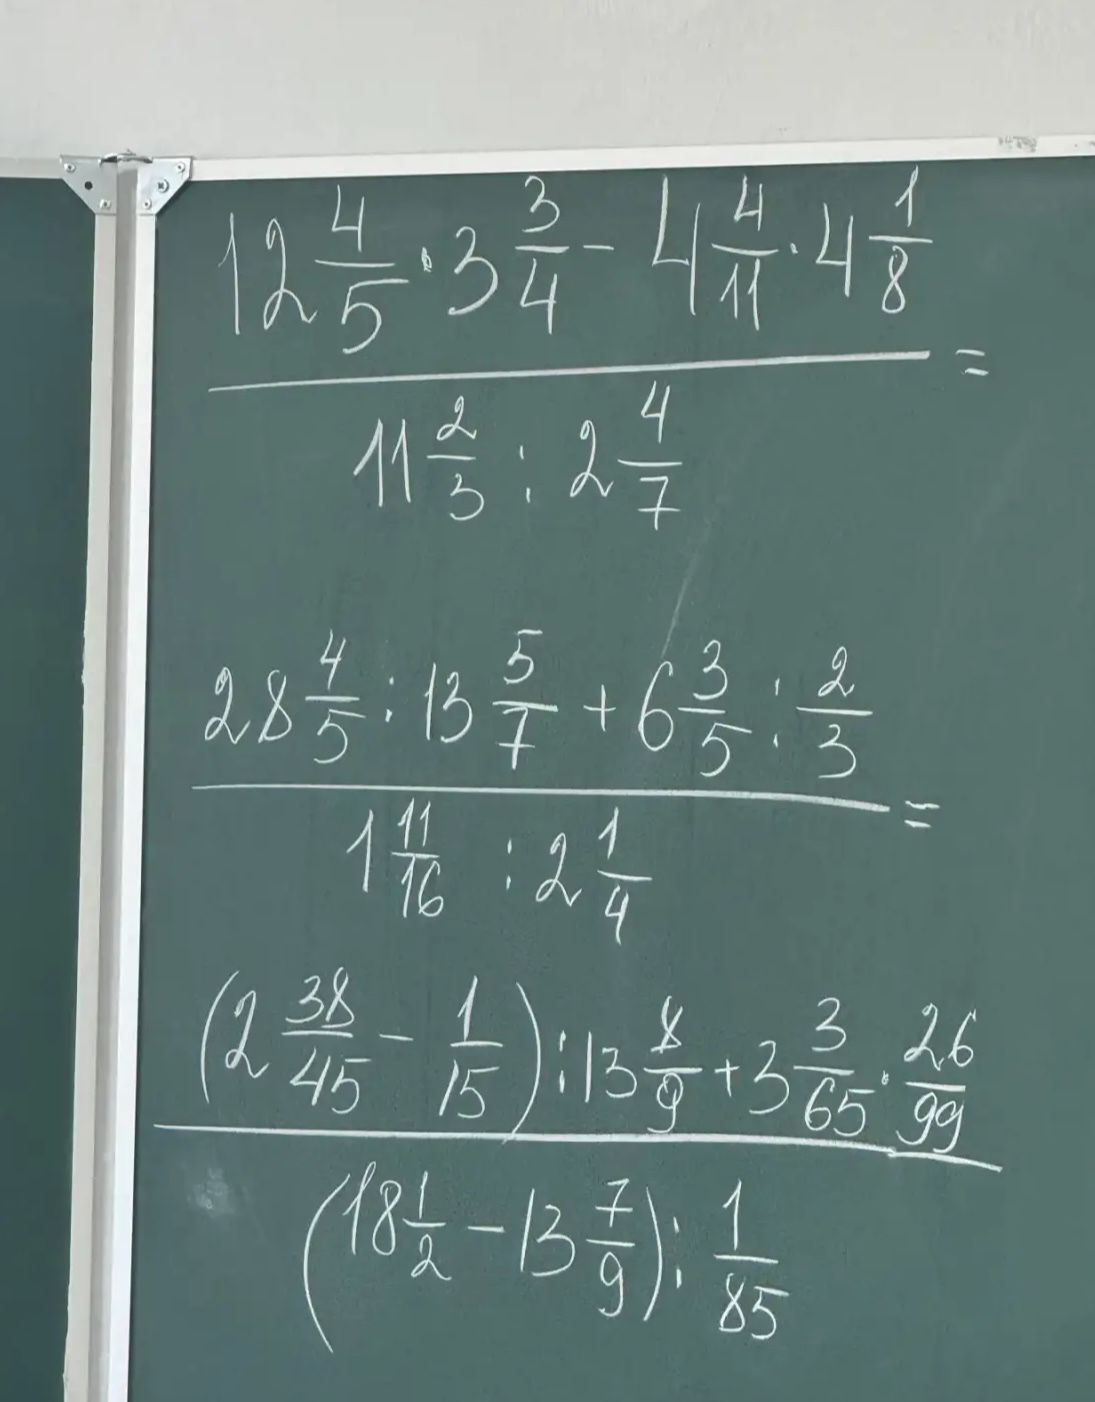 12 4/5 · 3 3/4 - 4 4/11 · 4 1/8
=
11 2/3 : 2 4/7
28 4/5 : 13 5/7 + 6 3/5 : 2/3
=
1 11/16 : 2 1/4
(2 38/45 - 1/15) : 13 8/9 + 3 3/65 · 26/99
(18 1/2 - 13 7/9) : 1/85